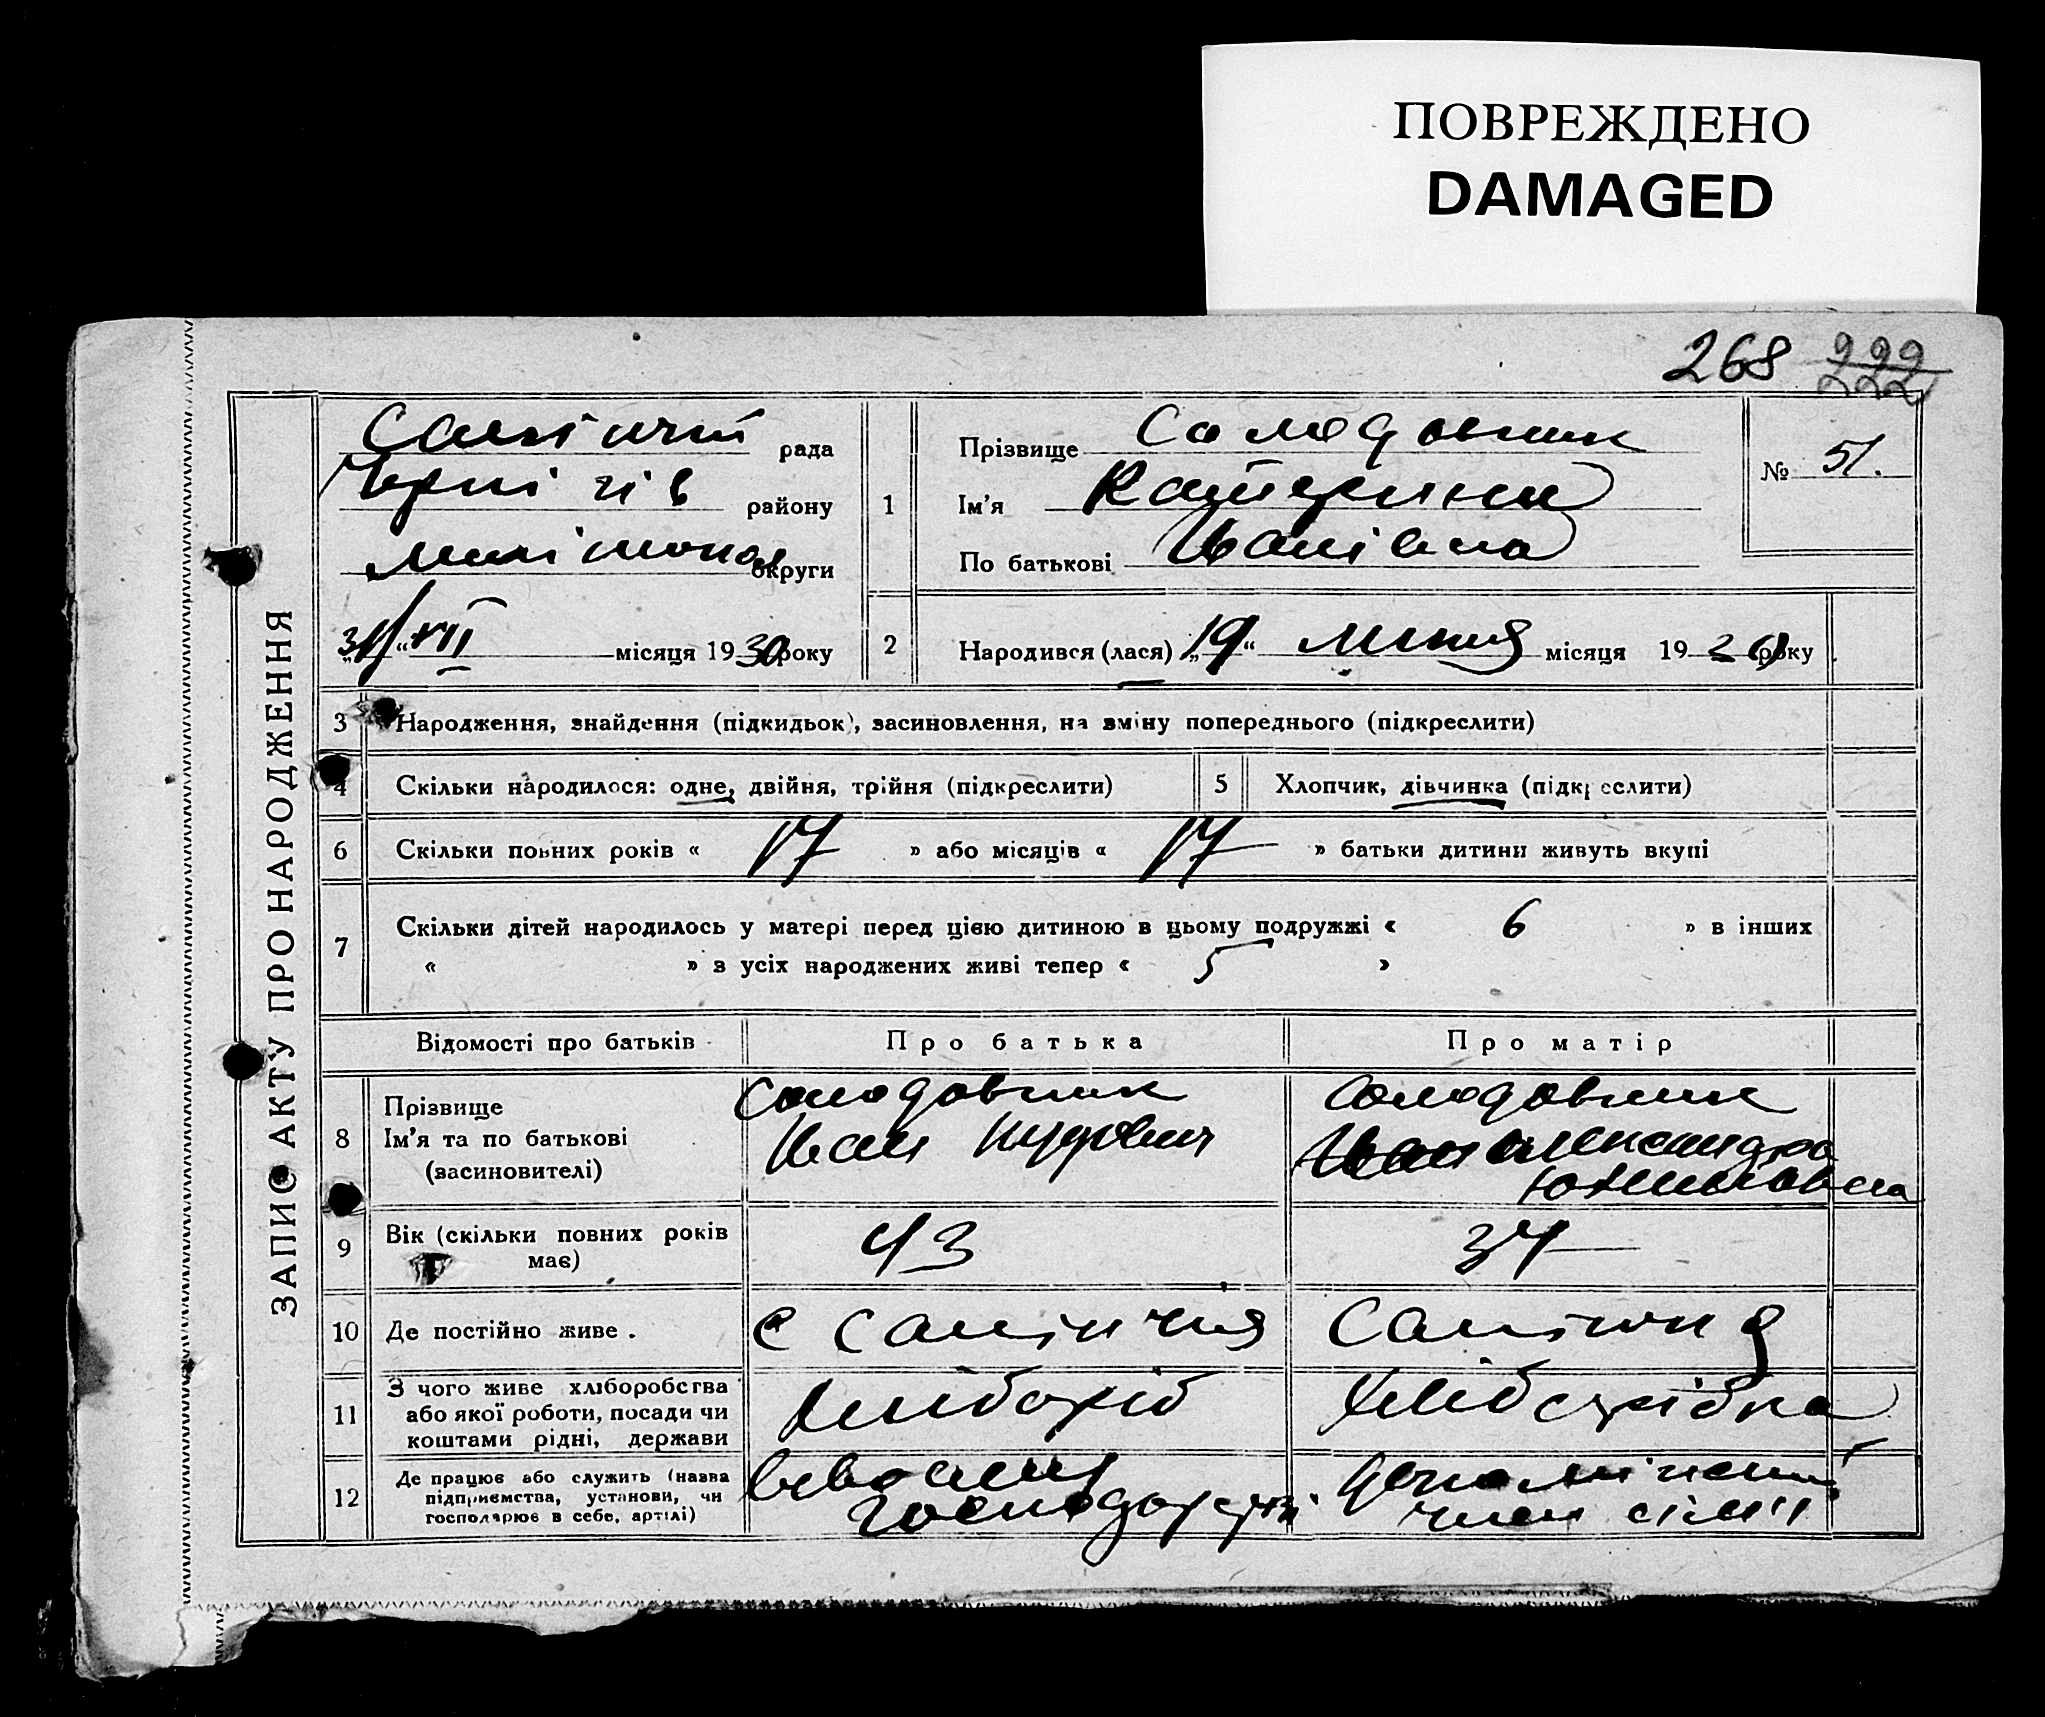 ПОВРЕЖДЕНО
DAMAGED
268 222
ЗАПИС АКТУ ПРО НАРОДЖЕННЯ
рада
Черні гів району
округи
„31“ VII місяця 1930 року
1
Прізвище Солодовник
Ім'я Катерина
По батькові Іванівна
№ 51.
2 Народився (лася) „19“ липня місяця 19 року
3 Народження, знайдення (підкидьок), засиновлення, на зміну попереднього (підкреслити)
4 Скільки народилося: одне, двійня, трійня (підкреслити)
5 Хлопчик, дівчинка (підкреслити)
6 Скільки повних років « 17 » або місяців « 17 » батьки дитини живуть вкупі
7 Скільки дітей народилось у матері перед цією дитиною в цьому подружжі « 6 » в інших
« » з усіх народжених живі тепер « 5 »
Відомості про батьків
Про батька
Про матір
8 Прізвище
Ім'я та по батькові
(засиновителі)
Солодовник
Иван
Солодовник
Александра
9 Вік (скільки повних років
має)
43
37
10 Де постійно живе.
с
11 З чого живе хліборобства
або якої роботи, посади чи
коштами рідні, держави
хлібороб
12 Де працює або служить (назва
підприємства, установи, чи
господарює в себе, артілі)
в своему
господарстві
член сімї